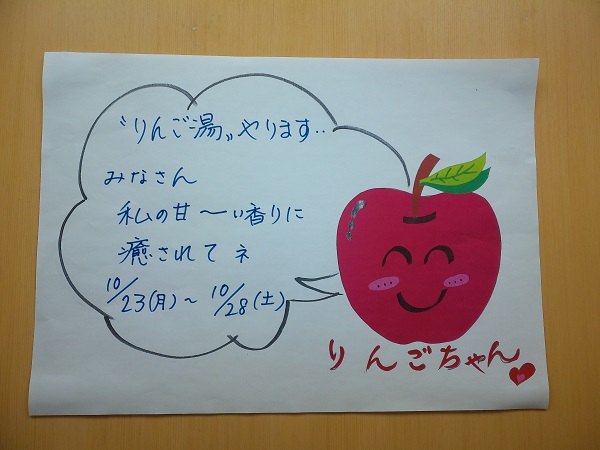 “りんご湯„やります‥
みなさん
私の甘〜い香りに
癒されてネ
10/23(月)〜10/28(土)
りんごちゃん